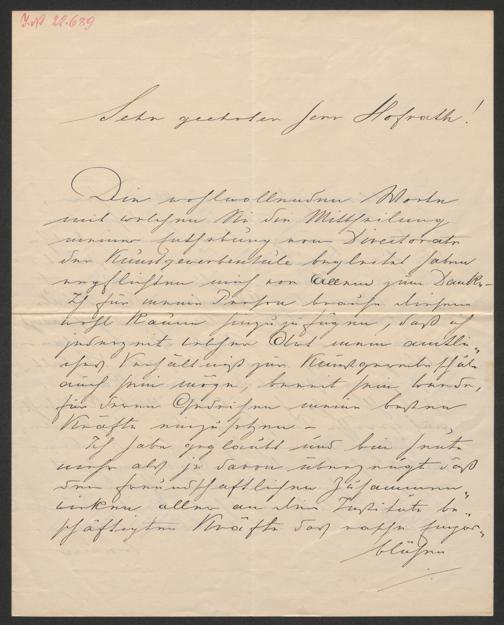 I.N. 22.689
Sehr geehrter Herr Hofrath!
Die wohlwollenden Worte
mit welchen Sie die Mittheilung
meiner Enthebung vom Directorate
der Kunstgewerbeschule begleitet haben
verpflichten mich vor Allem zum Danke.
Ich für meine Person brauche diesem
wohl kaum hinzuzufügen, daß ich
jederzeit, welcher Art mein amtli„
ches Verhältniß zur Kunstgewerbeschule
auch sein möge, bereit sein werde,
für deren Gedeihen meine besten
Kräfte einzusetzen –
Ich habe geglaubt und bin heute
mehr als je davon überzeugt daß
dem freundschaftlichen Zusammen„
wirken aller an dem Institute be„
schäftigten Kräfte das rasche Empor„
blühen